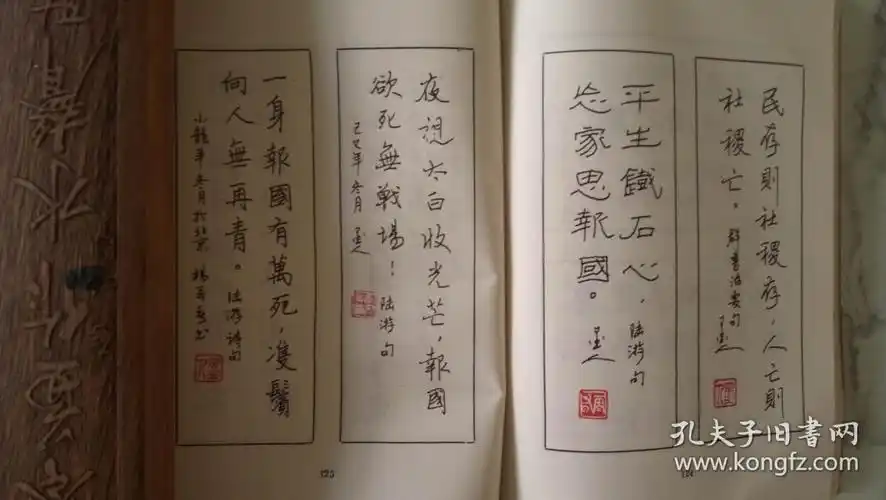 民存則社稷存，人亡則
社稷亡。群書治要句
平生鐵石心，陸游句
忘家思報國。
夜視太白收光芒，報國
欲死無戰場！陸游句
己巳年冬月
一身報國有萬死，雙鬢
向人無再青。陸游詩句
小龍年冬月於北京
125
孔夫子旧書网
www.kongfz.com